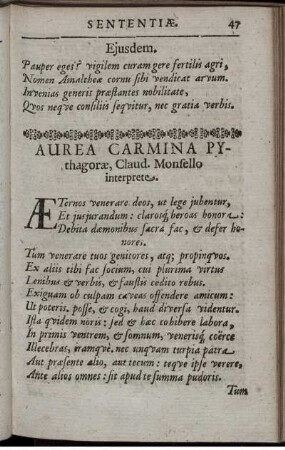 SENTENTIÆ. 47
Ejusdem.
Pauper eges? vigilem curam gere fertilis agri,
Nomen Amaltheæ cornu sibi vendicat arvum.
Invenias generis præstantes nobilitate,
Qvos neqve consiliis seqvitur, nec gratia verbis.
AUREA CARMINA PY-
thagoræ, Claud. Monsello
interprete.
ÆTernos venerare deos, ut lege jubentur,
Et jusjurandum: clarosq; heroas honora:
Debita dæmonibus sacra fac, & defer ho
nores.
Tum venerare tuos genitores, atq; propinqvos.
Ex aliis tibi fac socium, cui plurima virtus
Lenibus & verbis, & faustis cedito rebus.
Exiguam ob culpam caveas offendere amicum:
Ut poteris. posse, & cogi, haud diversa videntur.
Ista qvidem noris: sed & hæc cohibere labora,
In primis ventrem, & somnum, venerisq; coërce
Illecebras, iramqve. nec unqvam turpia patra
Aut præsente alio, aut tecum: teqve ipse verere,
Ante alios omnes: sit apud te summa pudoris.
Tum